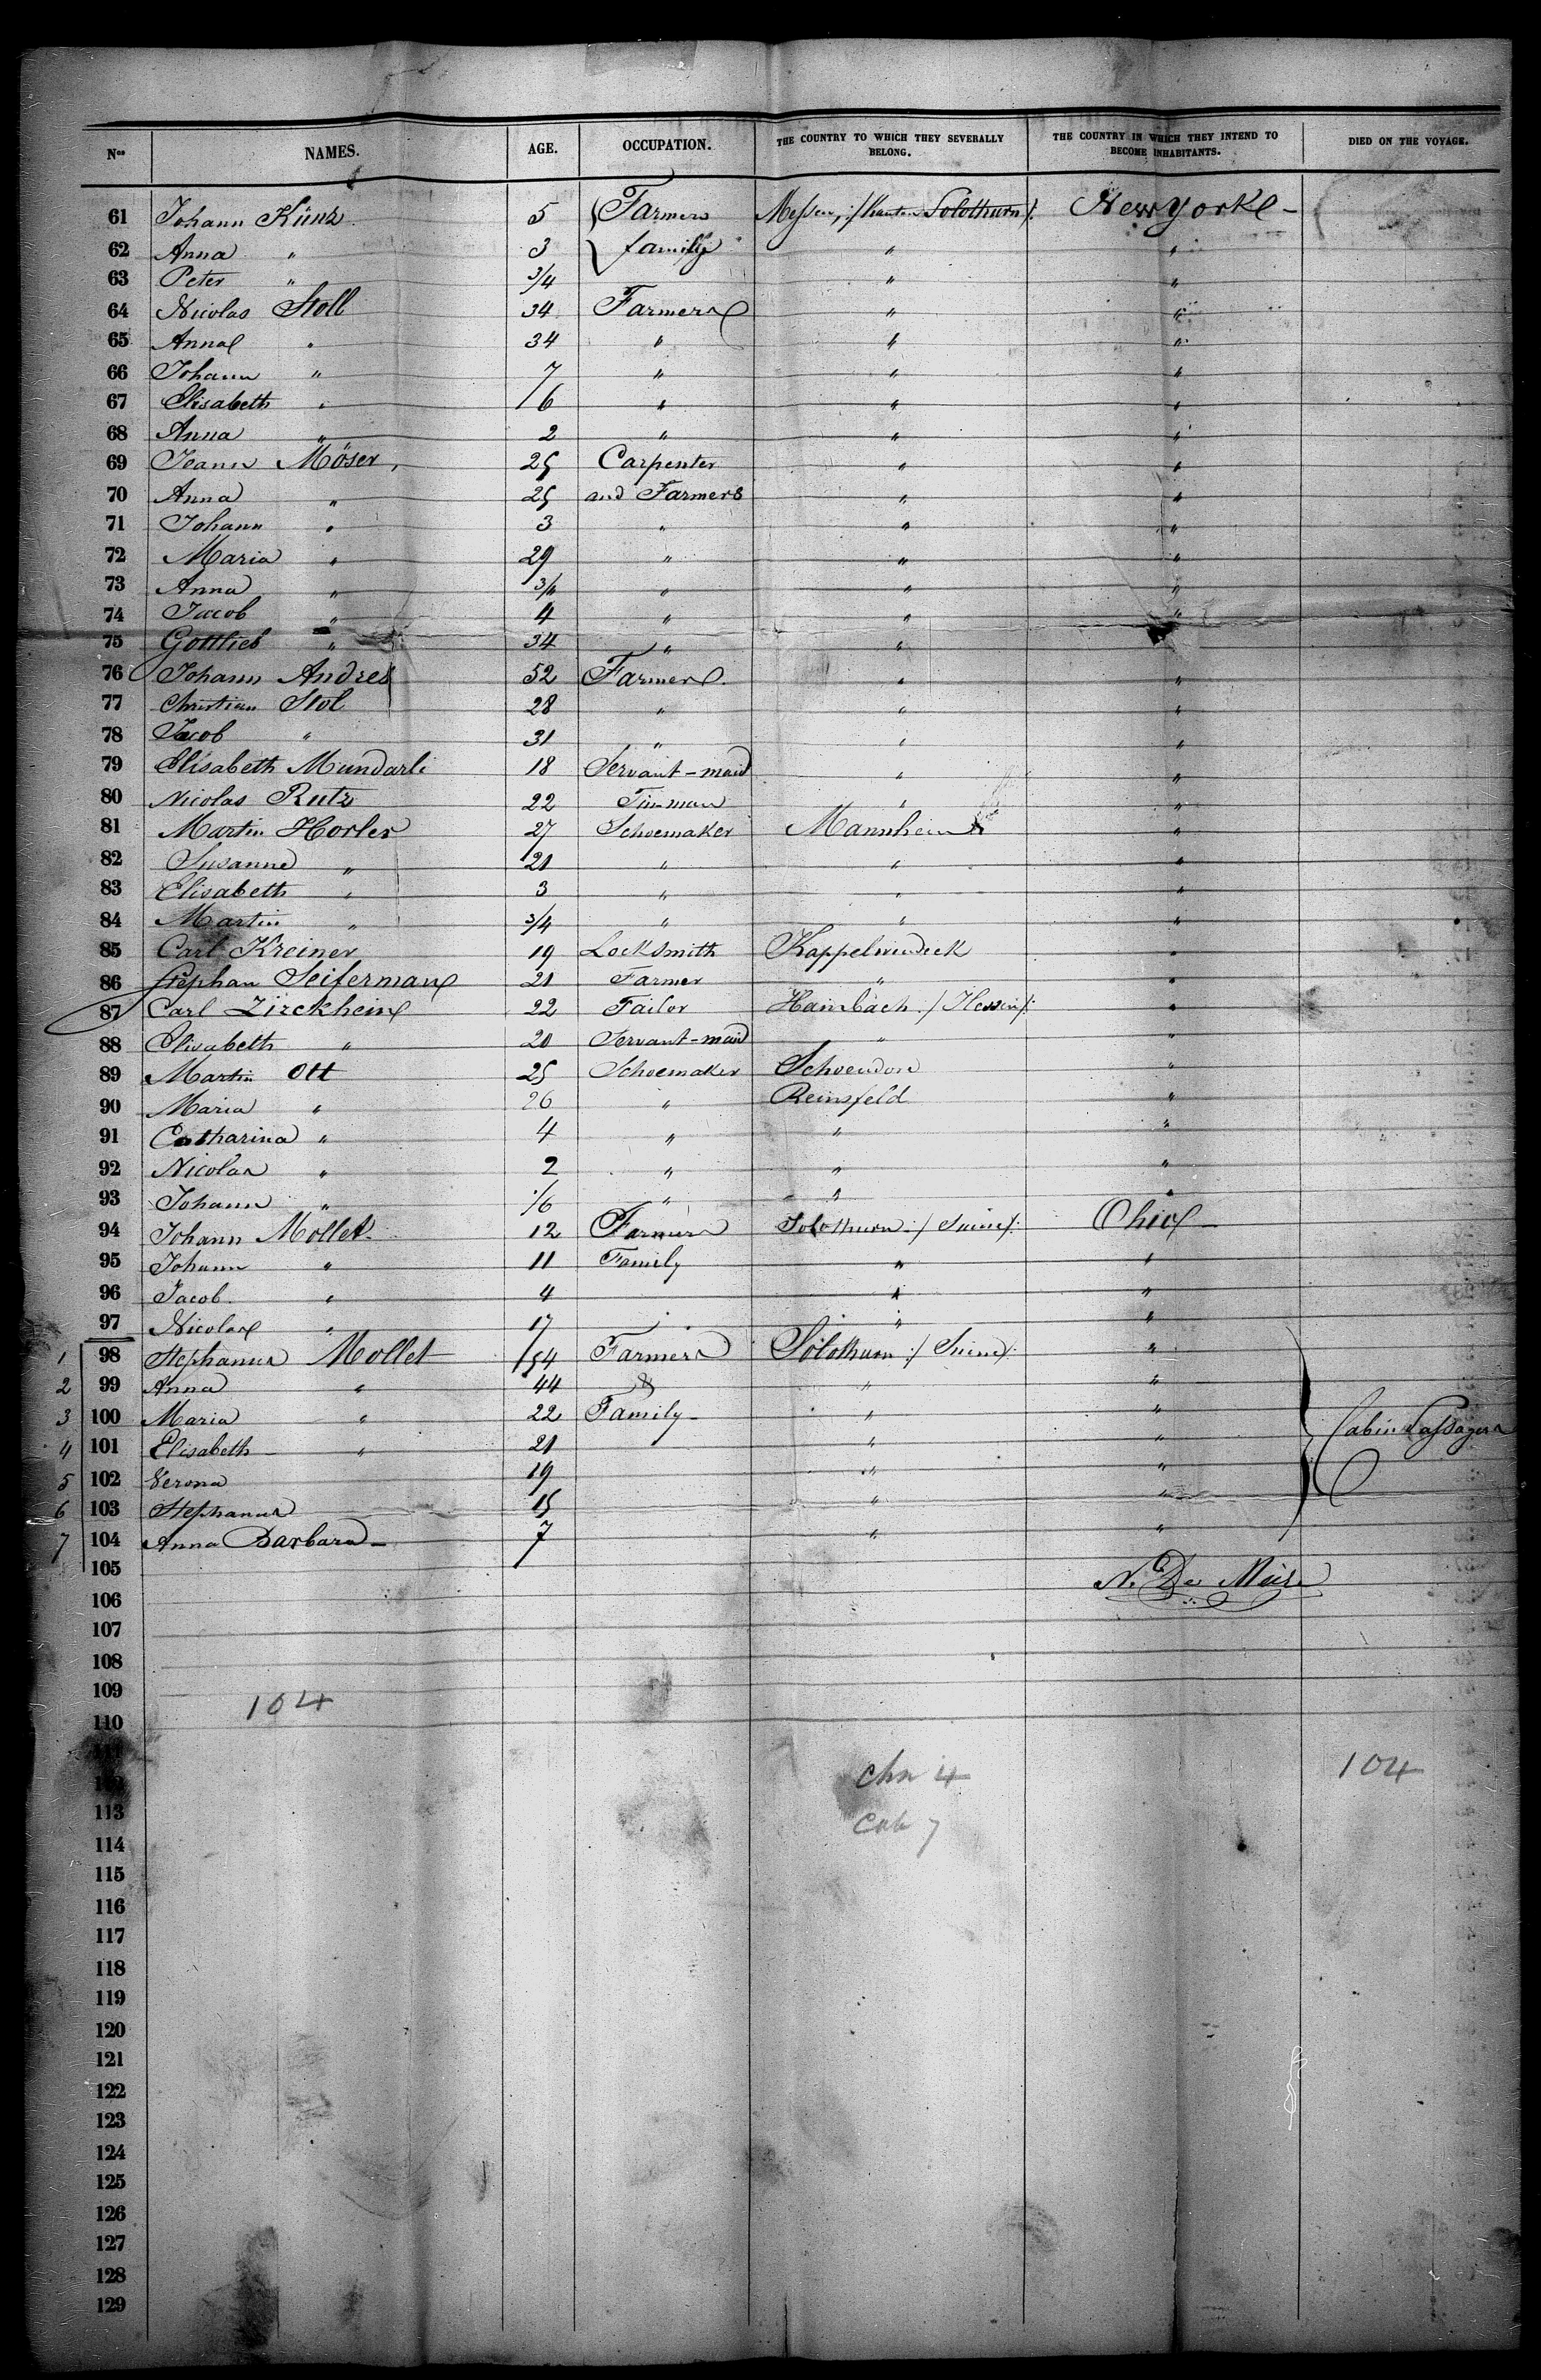 Nos NAMES. AGE. OCCUPATION. THE COUNTRY TO WHICH THEY SEVERALLY BELONG. THE COUNTRY IN WHICH THEY INTEND TO BECOME INHABITANTS. DIED ON THE VOYAGE.
61 Johann Künz 5 Farmers Messen, :/ Kanton Solothurn /: New Yorke -
62 Anna " 3 family " "
63 Peter " 3/4 " "
64 Nicolas Stoll 34 Farmers " "
65 Anna " 34 " " "
66 Johann " 7 " " "
67 Elisabeth " 6 " " "
68 Anna " 2 " " "
69 Joann Möser, 25 Carpenter " "
70 Anna " 25 and Farmers " "
71 Johann " 3 " " "
72 Maria " 29 " " "
73 Anna " " " "
74 Jacob " 4 " " "
75 Gottlieb " 34 " " "
76 Johann Andres 52 Farmers " "
77 Christian Stol 28 " " "
78 Jacob " 31 " " "
79 Elisabeth Mundarli 18 Servant-maid " "
80 Nicolas Rutz 22 Tin-man " "
81 Martin Horler 27 Schoemaker Mannheim "
82 Susanne " 21 " " "
83 Elisabeth " 3 " " "
84 Martin " 3/4 " " "
85 Carl Kreiner 19 Locksmith "
86 Stephan Seiferman 21 Farmer " "
87 Carl Zirckhein 22 Tailor Hainbach :/ Hessen /: "
88 Elisabeth " 20 Servant-maid " "
89 Martin Ott 25 Schoemaker "
90 Maria " 26 " Reinsfeld "
91 Catharina " 4 " " "
92 Nicolas " 2 " " "
93 Johann " /6 " " "
94 Johann Mollet 12 Farmers Solothurn :/ /: Ohio -
95 Johann " 11 Family " "
96 Jacob " 4 " "
97 Nicolas " 17 " "
1 98 Stephanus Mollet 54 Farmers Solothurn :/ /: "
2 99 Anna " 44 & " "
3 100 Maria " 22 Family - " "
4 101 Elisabeth " 21 " " Cabin Passagers
5 102 Verona 19 " "
6 103 Stephanus 15 " "
7 104 Anna Barbara - 7 " "
105
106 N. De
107
108
109
110 104
111
112 4 104
113 Cab 7
114
115
116
117
118
119
120
121
122
123
124
125
126
127
128
129